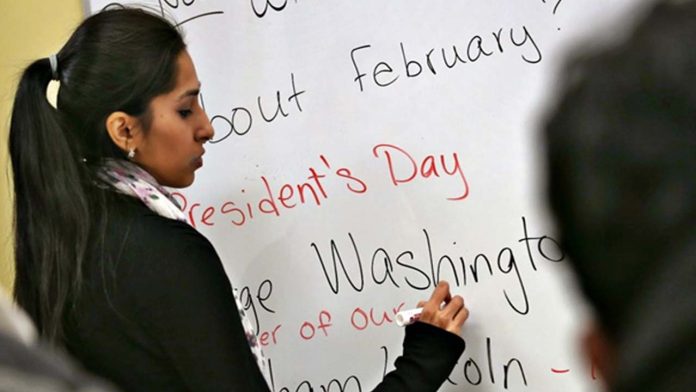 About February?
President's Day
ge Washingto
er of our
ham Lincoln -